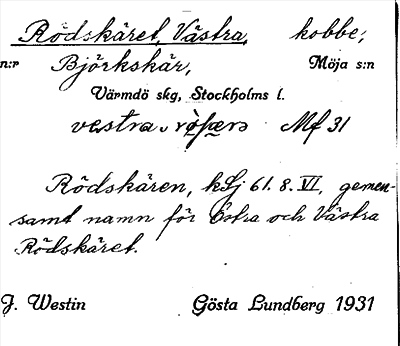 Rödskäret, Västra, kobbe;
n:r Björkskär, Möja s:n
Värmdö skg, Stockholms l.
vestra Mf 31
Rödskären, kSj 61. 8. VI, gemen-
samt namn för Östra och Västra
Rödskäret.
J. Westin Gösta Lundberg 1931